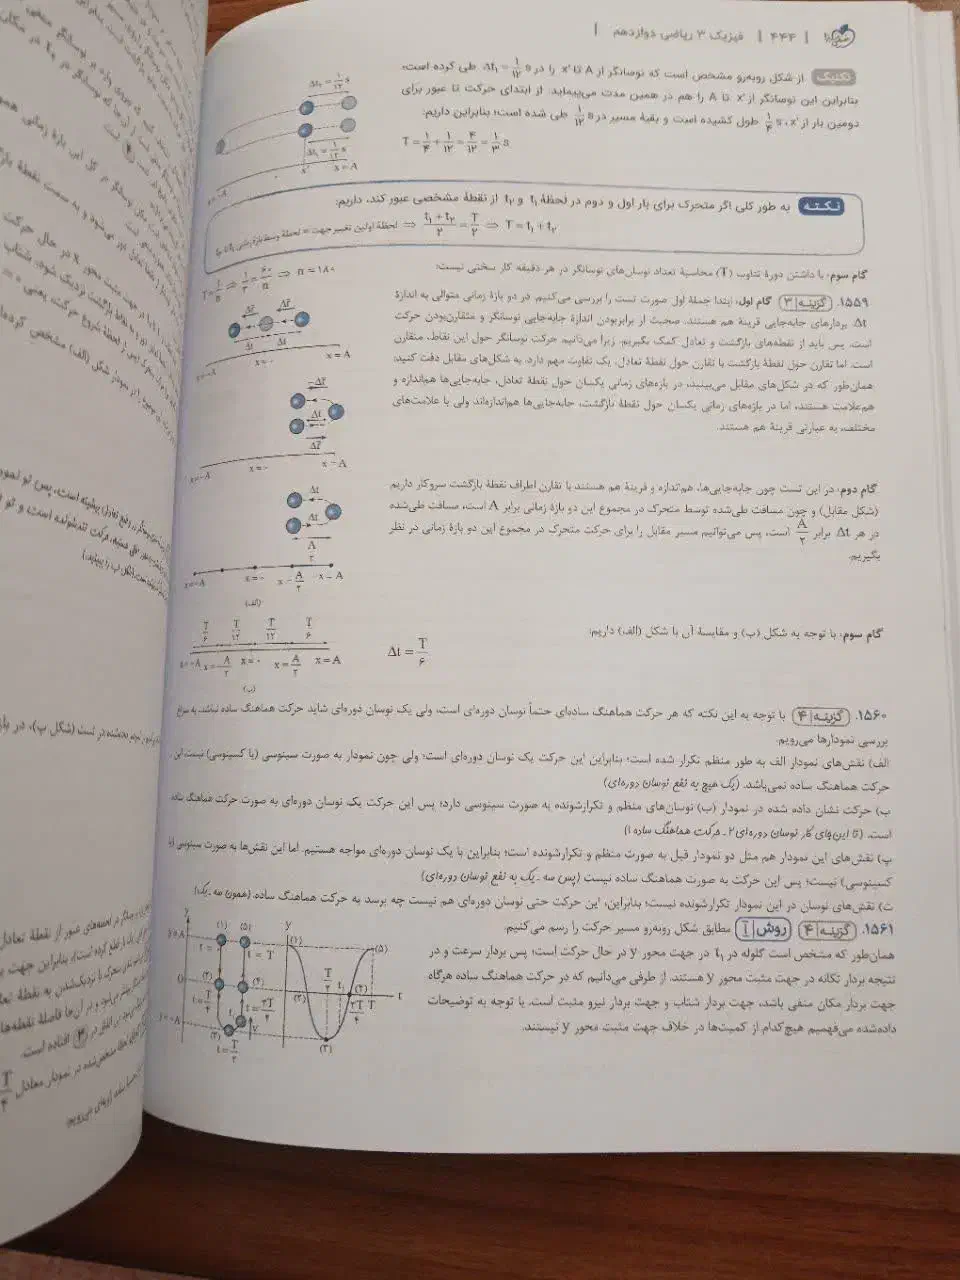 | ۴۴۴ | فیزیک ۳ ریاضی دوازدهم |
تکنیک از شکل روبه‌رو مشخص است که نوسانگر از A تا x' را در Δt₁ = ۱/۱۲ s طی کرده است؛
بنابراین این نوسانگر از x' تا A را هم در همین مدت می‌پیماید. از ابتدای حرکت تا عبور برای
دومین بار از x'، ۱/۴ s طول کشیده است و بقیهٔ مسیر در ۱/۱۲ s طی شده است؛ بنابراین داریم:
T = ۱/۴ + ۱/۱۲ = ۴/۱۲ = ۱/۳ s
Δt₁ = ۱/۱۲ s
Δt₁ = ۱/۱۲ s
-A x' x = A
نکته به طور کلی اگر متحرک برای بار اول و دوم در لحظهٔ t₁ و t₂ از نقطهٔ مشخصی عبور کند، داریم:
لحظهٔ اولین تغییر جهت = لحظهٔ وسط بازهٔ زمانی t₁ تا t₂ ⇒ (t₁ + t₂)/۲ = T/۲ ⇒ T = t₁ + t₂
گام سوم: با داشتن دورهٔ تناوب (T) محاسبهٔ تعداد نوسان‌های نوسانگر در هر دقیقه کار سختی نیست:
T = t/n ⇒ ۱/۳ = ۶۰/n ⇒ n = ۱۸۰
۱۵۵۹. گزینه ۳ گام اول: ابتدا جملهٔ اول صورت تست را بررسی می‌کنیم. در دو بازهٔ زمانی متوالی به اندازهٔ
Δt بردارهای جابه‌جایی قرینهٔ هم هستند. صحبت از برابربودن اندازهٔ جابه‌جایی نوسانگر و متقارن‌بودن حرکت
است. پس باید از نقطه‌های بازگشت و تعادل کمک بگیریم. زیرا می‌دانیم حرکت نوسانگر حول این نقاط، متقارن
است. اما تقارن حول نقطهٔ بازگشت با تقارن حول نقطهٔ تعادل، یک تفاوت مهم دارد. به شکل‌های مقابل دقت کنید:
همان‌طور که در شکل‌های مقابل می‌بینید، در بازه‌های زمانی یکسان حول نقطهٔ تعادل، جابه‌جایی‌ها هم‌اندازه و
هم‌علامت هستند، اما در بازه‌های زمانی یکسان حول نقطهٔ بازگشت، جابه‌جایی‌ها هم‌اندازه‌اند ولی با علامت‌های
مختلف، به عبارتی قرینهٔ هم هستند.
Δr Δr
Δt Δt
x=-A x=۰ x=A
-Δr
Δr
x=-A x=۰ x=A
گام دوم: در این تست چون جابه‌جایی‌ها، هم‌اندازه و قرینهٔ هم هستند با تقارن اطراف نقطهٔ بازگشت سروکار داریم
(شکل مقابل) و چون مسافت طی‌شده توسط متحرک در مجموع این دو بازهٔ زمانی برابر A است، مسافت طی‌شده
در هر Δt برابر A/۲ است، پس می‌توانیم مسیر مقابل را برای حرکت متحرک در مجموع این دو بازهٔ زمانی در نظر
بگیریم.
Δt
Δt
A/۲
x=-A x=۰ x=A/۲ x=A
(الف)
گام سوم: با توجه به شکل (ب) و مقایسهٔ آن با شکل (الف) داریم:
Δt = T/۶
T/۶ T/۱۲ T/۱۲ T/۶
x=-A x=-A/۲ x=۰ x=A/۲ x=A
(ب)
۱۵۶۰. گزینه ۴ با توجه به این نکته که هر حرکت هماهنگ ساده‌ای حتماً نوسان دوره‌ای است، ولی یک نوسان دوره‌ای شاید حرکت هماهنگ ساده نباشد، به سراغ
بررسی نمودارها می‌رویم.
الف) نقش‌های نمودار الف به طور منظم تکرار شده است؛ بنابراین این حرکت یک نوسان دوره‌ای است؛ ولی چون نمودار به صورت سینوسی (یا کسینوسی) نیست، این
حرکت هماهنگ ساده نمی‌باشد. (یک هیچ به نفع نوسان دوره‌ای)
ب) حرکت نشان داده شده در نمودار (ب) نوسان‌های منظم و تکرارشونده به صورت سینوسی دارد؛ پس این حرکت یک نوسان دوره‌ای به صورت حرکت هماهنگ ساده
است. (تا این‌جای کار نوسان دوره‌ای ۲ ـ حرکت هماهنگ ساده ۱)
پ) نقش‌های این نمودار هم مثل دو نمودار قبل به صورت منظم و تکرارشونده است؛ بنابراین با یک نوسان دوره‌ای مواجه هستیم. اما این نقش‌ها به صورت سینوسی (یا
کسینوسی) نیست؛ پس این حرکت به صورت هماهنگ ساده نیست (پس سه ـ یک به نفع نوسان دوره‌ای)
ت) نقش‌های نوسان در این نمودار تکرارشونده نیست؛ بنابراین، این حرکت حتی نوسان دوره‌ای هم نیست چه برسد به حرکت هماهنگ ساده. (همون سه ـ یک)
۱۵۶۱. گزینه ۴ روش ۱ مطابق شکل روبه‌رو مسیر حرکت را رسم می‌کنیم.
همان‌طور که مشخص است گلوله در t₁ در جهت محور y در حال حرکت است؛ پس بردار سرعت و در
نتیجه بردار تکانه در جهت مثبت محور y هستند. از طرفی می‌دانیم که در حرکت هماهنگ ساده هرگاه
جهت بردار مکان منفی باشد، جهت بردار شتاب و جهت بردار نیرو مثبت است. با توجه به توضیحات
داده‌شده می‌فهمیم هیچ‌کدام از کمیت‌ها در خلاف جهت مثبت محور y نیستند.
y (۱) (۵) y
y=A t=۰ t=T (۱) (۵)
۰ (۲) (۴) T/۲ (۲) (۴) t
t=T/۴ t=۳T/۴ t₁ ۳T/۴ T
y=-A t₁ v
(۳) (۳)
t=T/۲